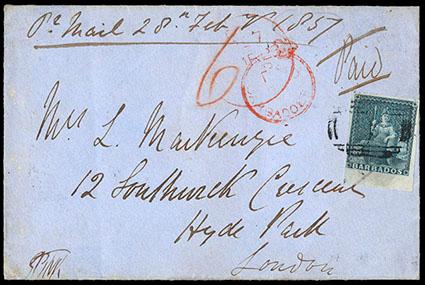 Pr Mail 28th Feby 1857
Paid
6
BARBADOES
Mrs L. MacKenzie
12 Southwick Crescent
Hyde Park
London
BARBADOS